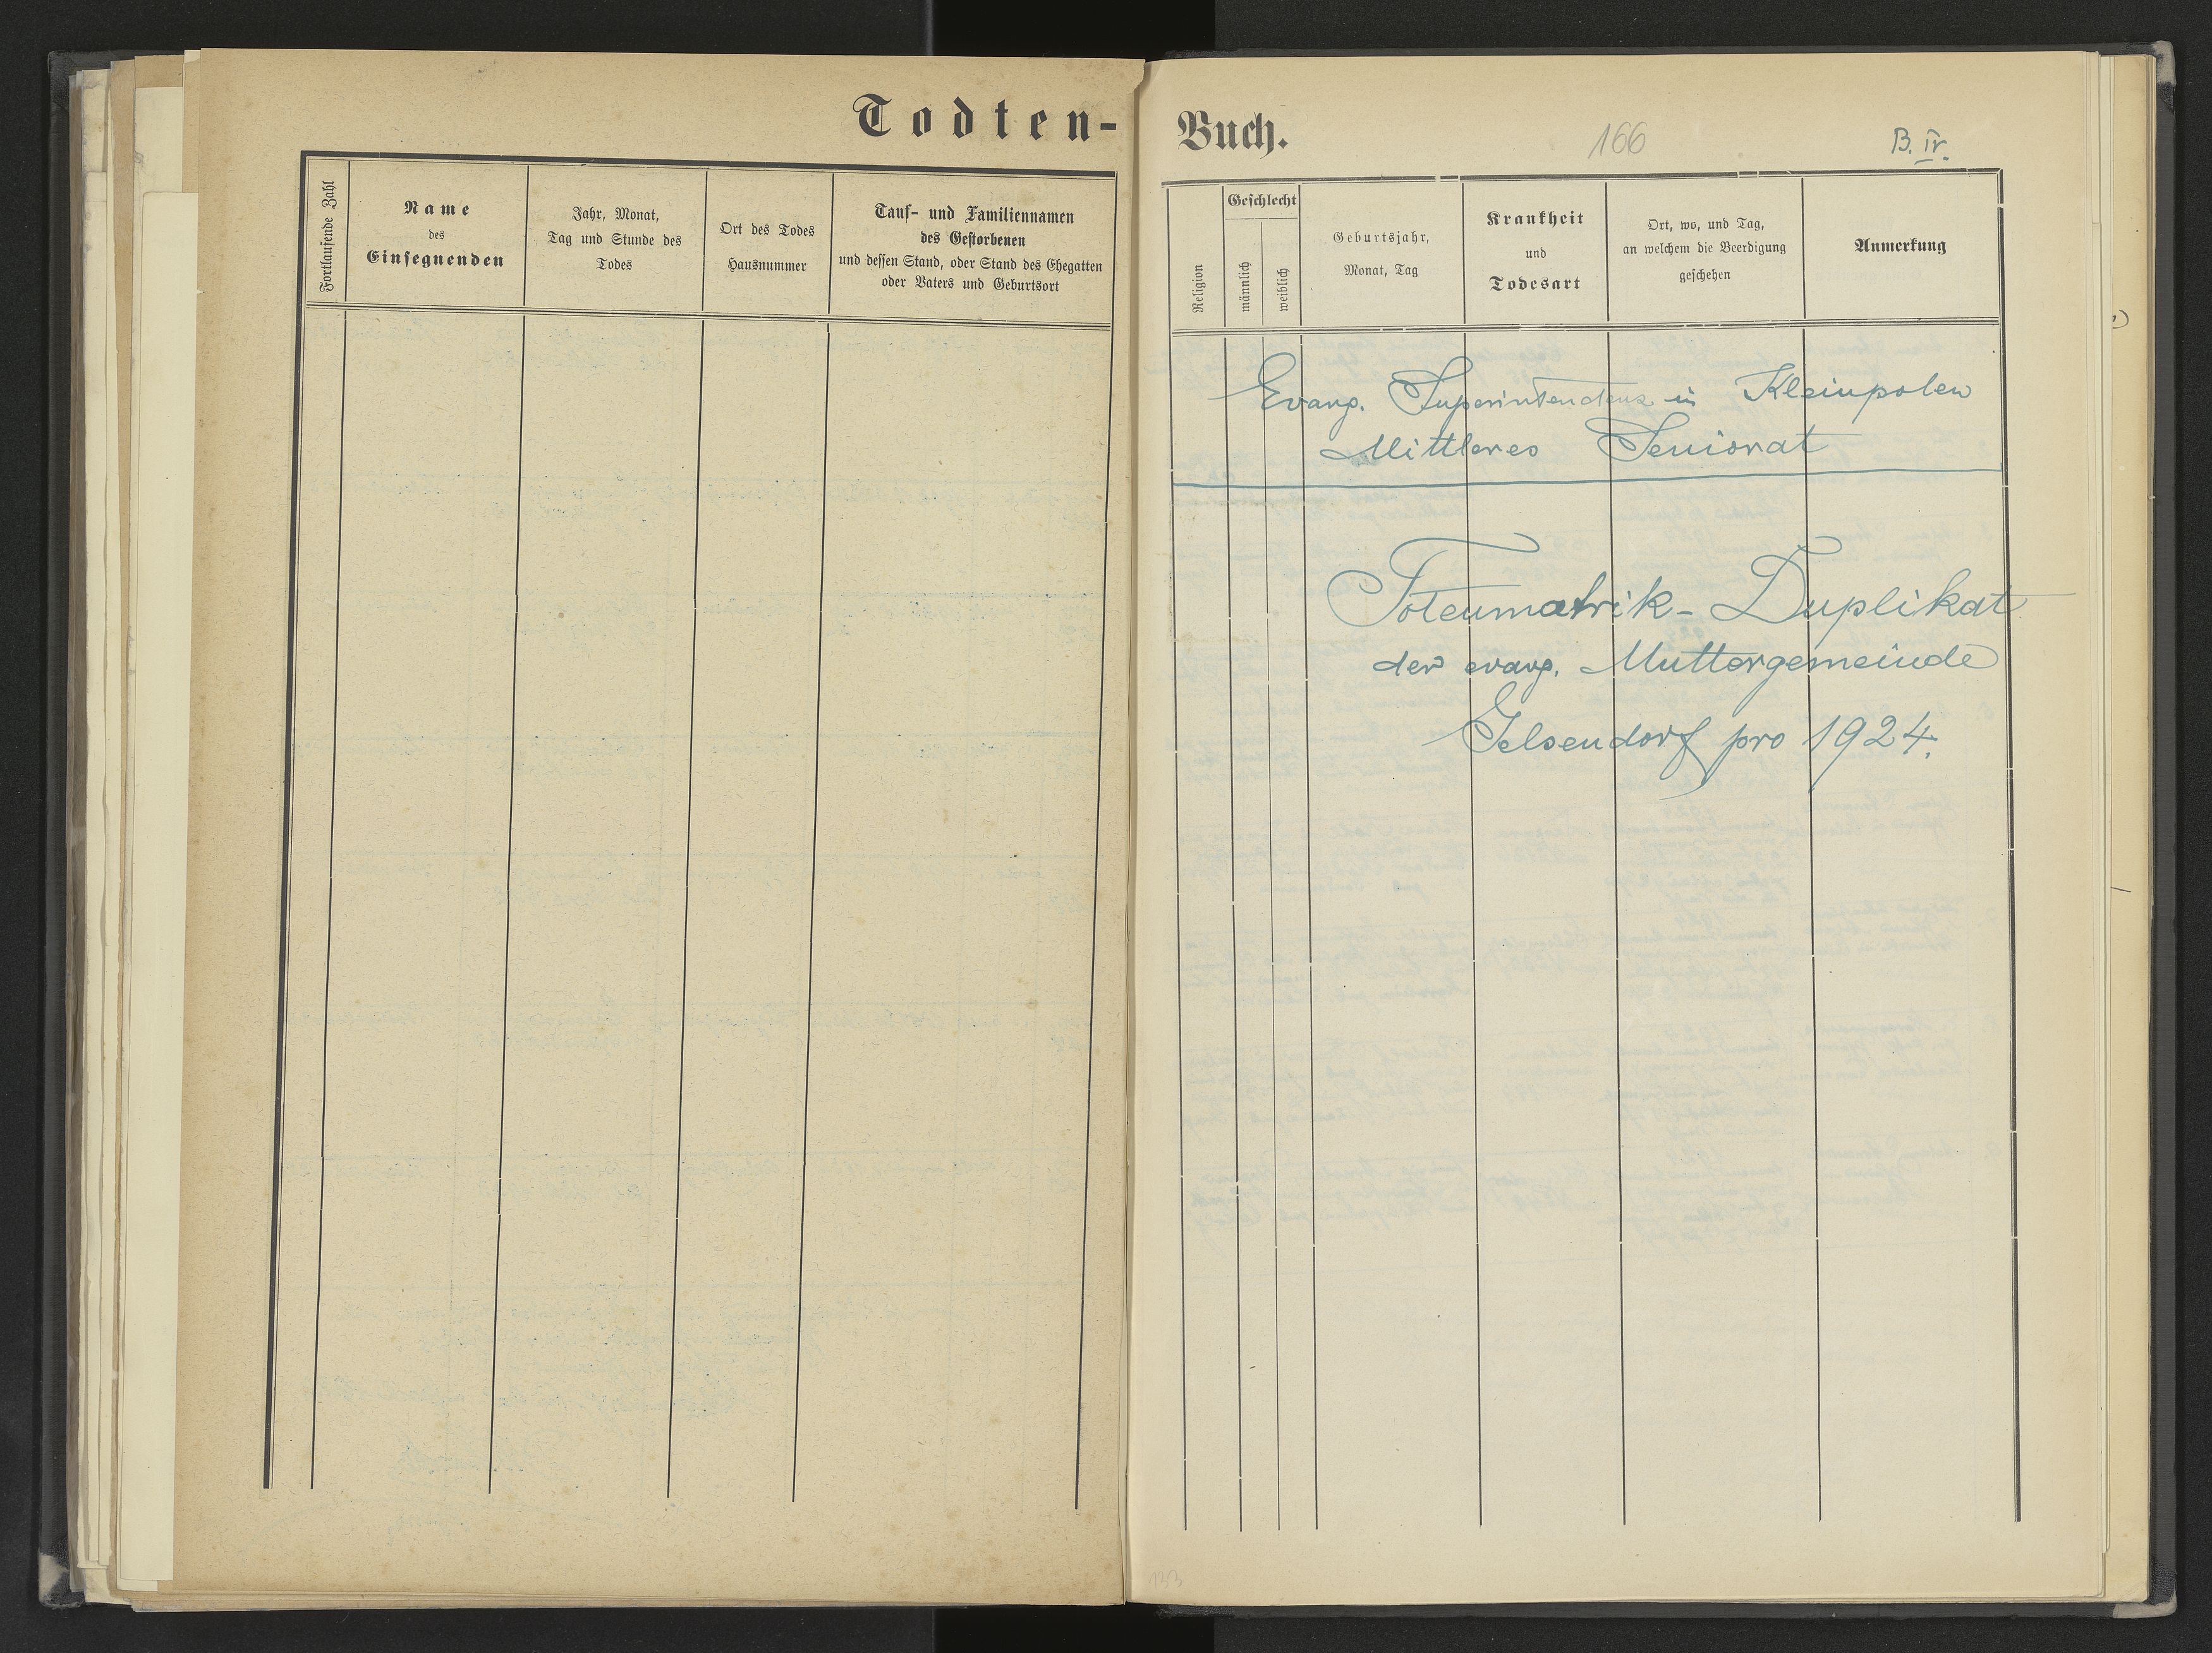 Todten-
Fortlaufende Zahl
Name
des
Einsegnenden
Jahr, Monat,
Tag und Stunde des
Todes
Ort des Todes
Hausnummer
Tauf- und Familiennamen
des Gestorbenen
und dessen Stand, oder Stand des Ehegatten
oder Vaters und Geburtsort
Buch.
166
B. IV.
Religion
Geschlecht
männlich
weiblich
Geburtsjahr,
Monat, Tag
Krankheit
und
Todesart
Ort, wo, und Tag,
an welchem die Beerdigung
geschehen
Anmerkung
Evang. Superintendenz in Kleinpolen
Mittleres Seniorat
Totenmatrik-Duplikat
der evang. Muttergemeinde
Gelsendorf pro 1924.
133